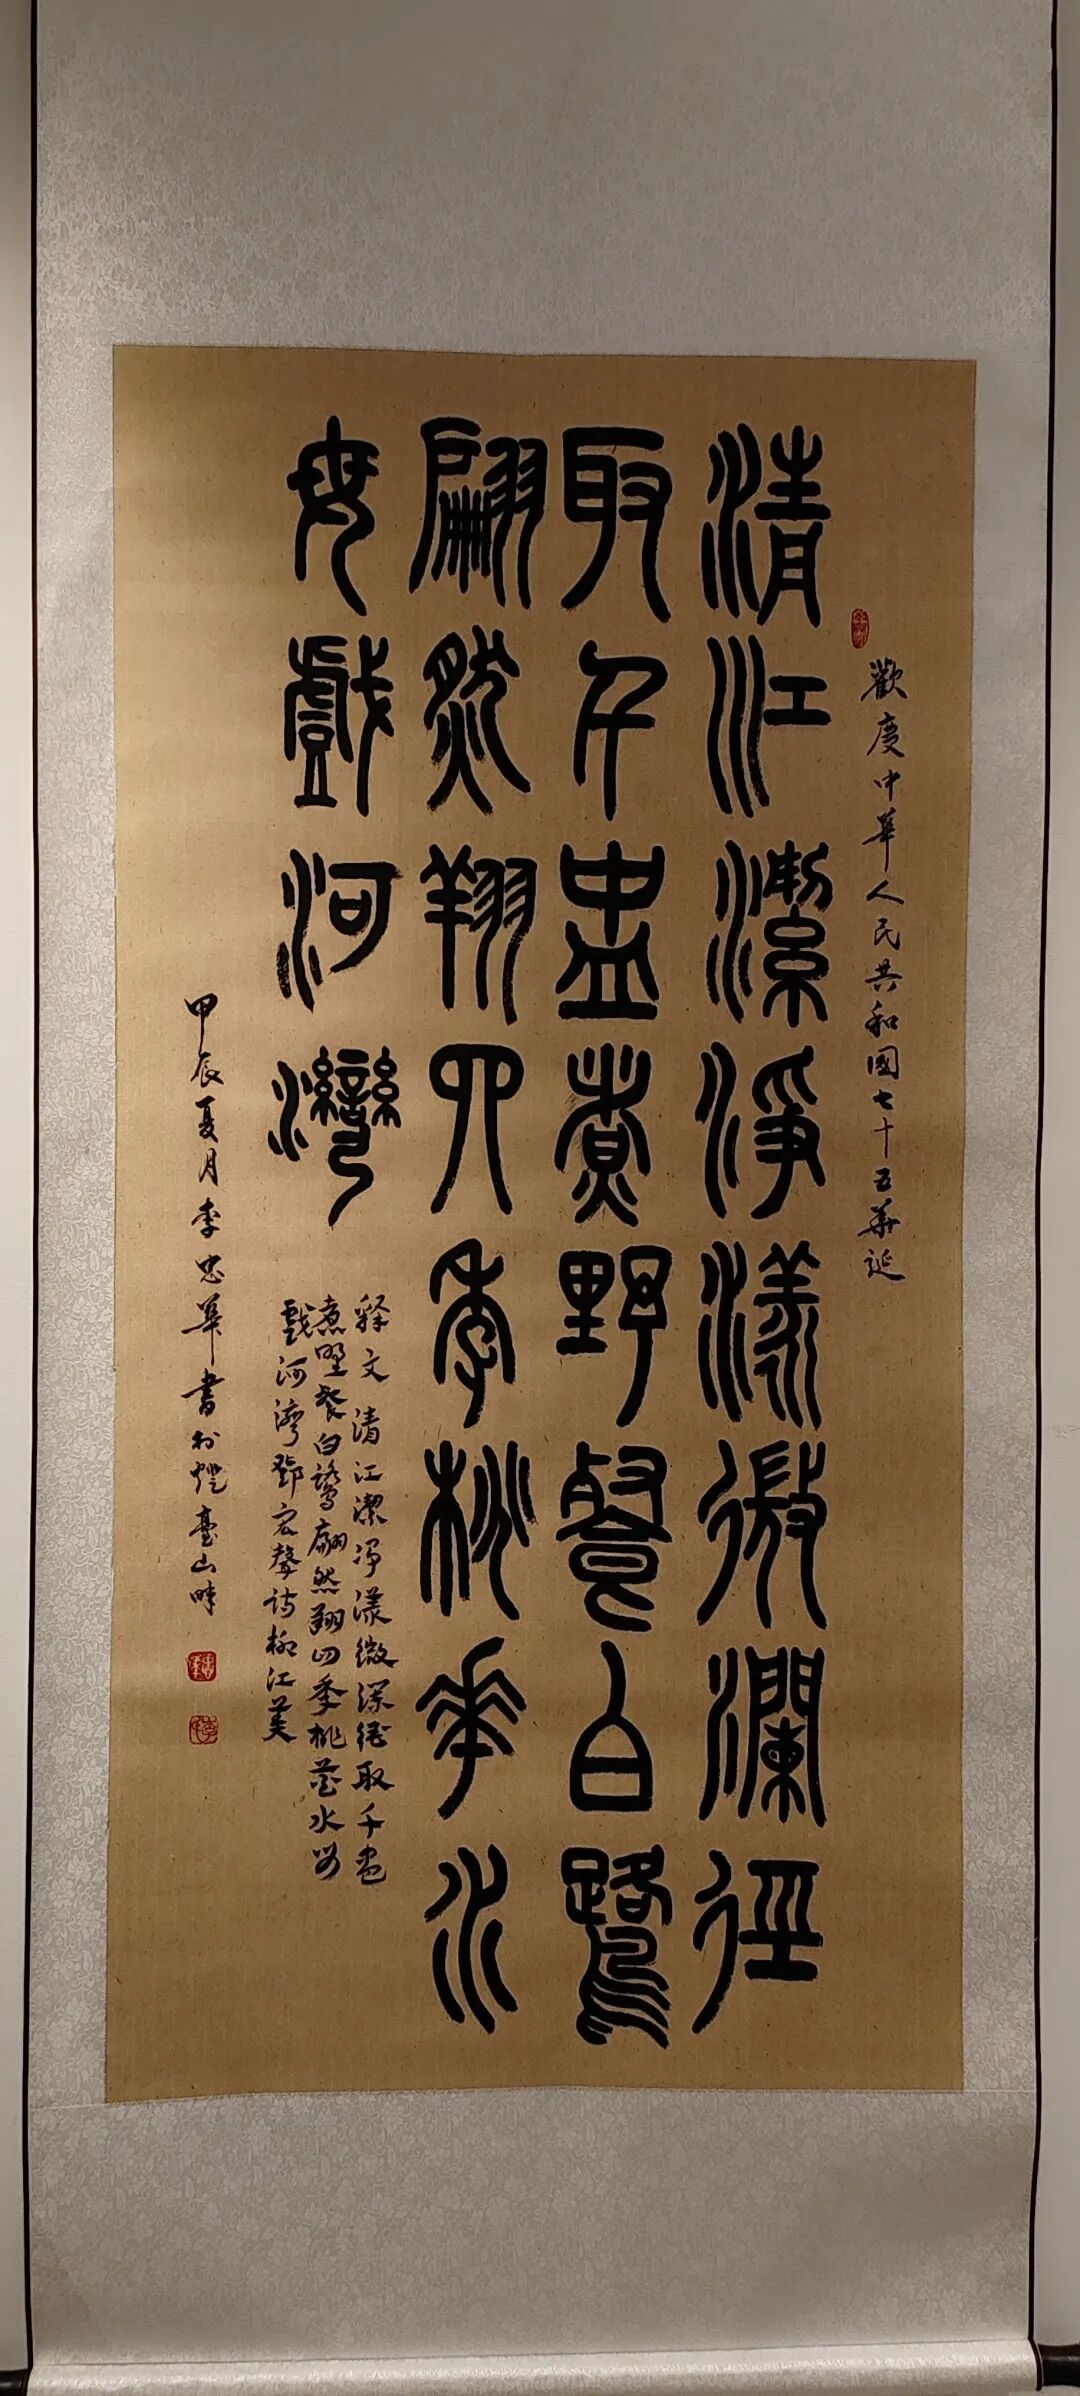 歡度中華人民共和國七十五華延
清江潔淨漾微瀾徑
取千盅煮野餐白鷺
翩然翔四季桃華水
母戲河灣
释文 清江潔淨漾微瀾徑取千盅
煮野餐白鷺翩然翔四季桃花水母
戲河灣鄧宏聲诗柳江美
甲辰夏月李忠華書於燈臺山畔